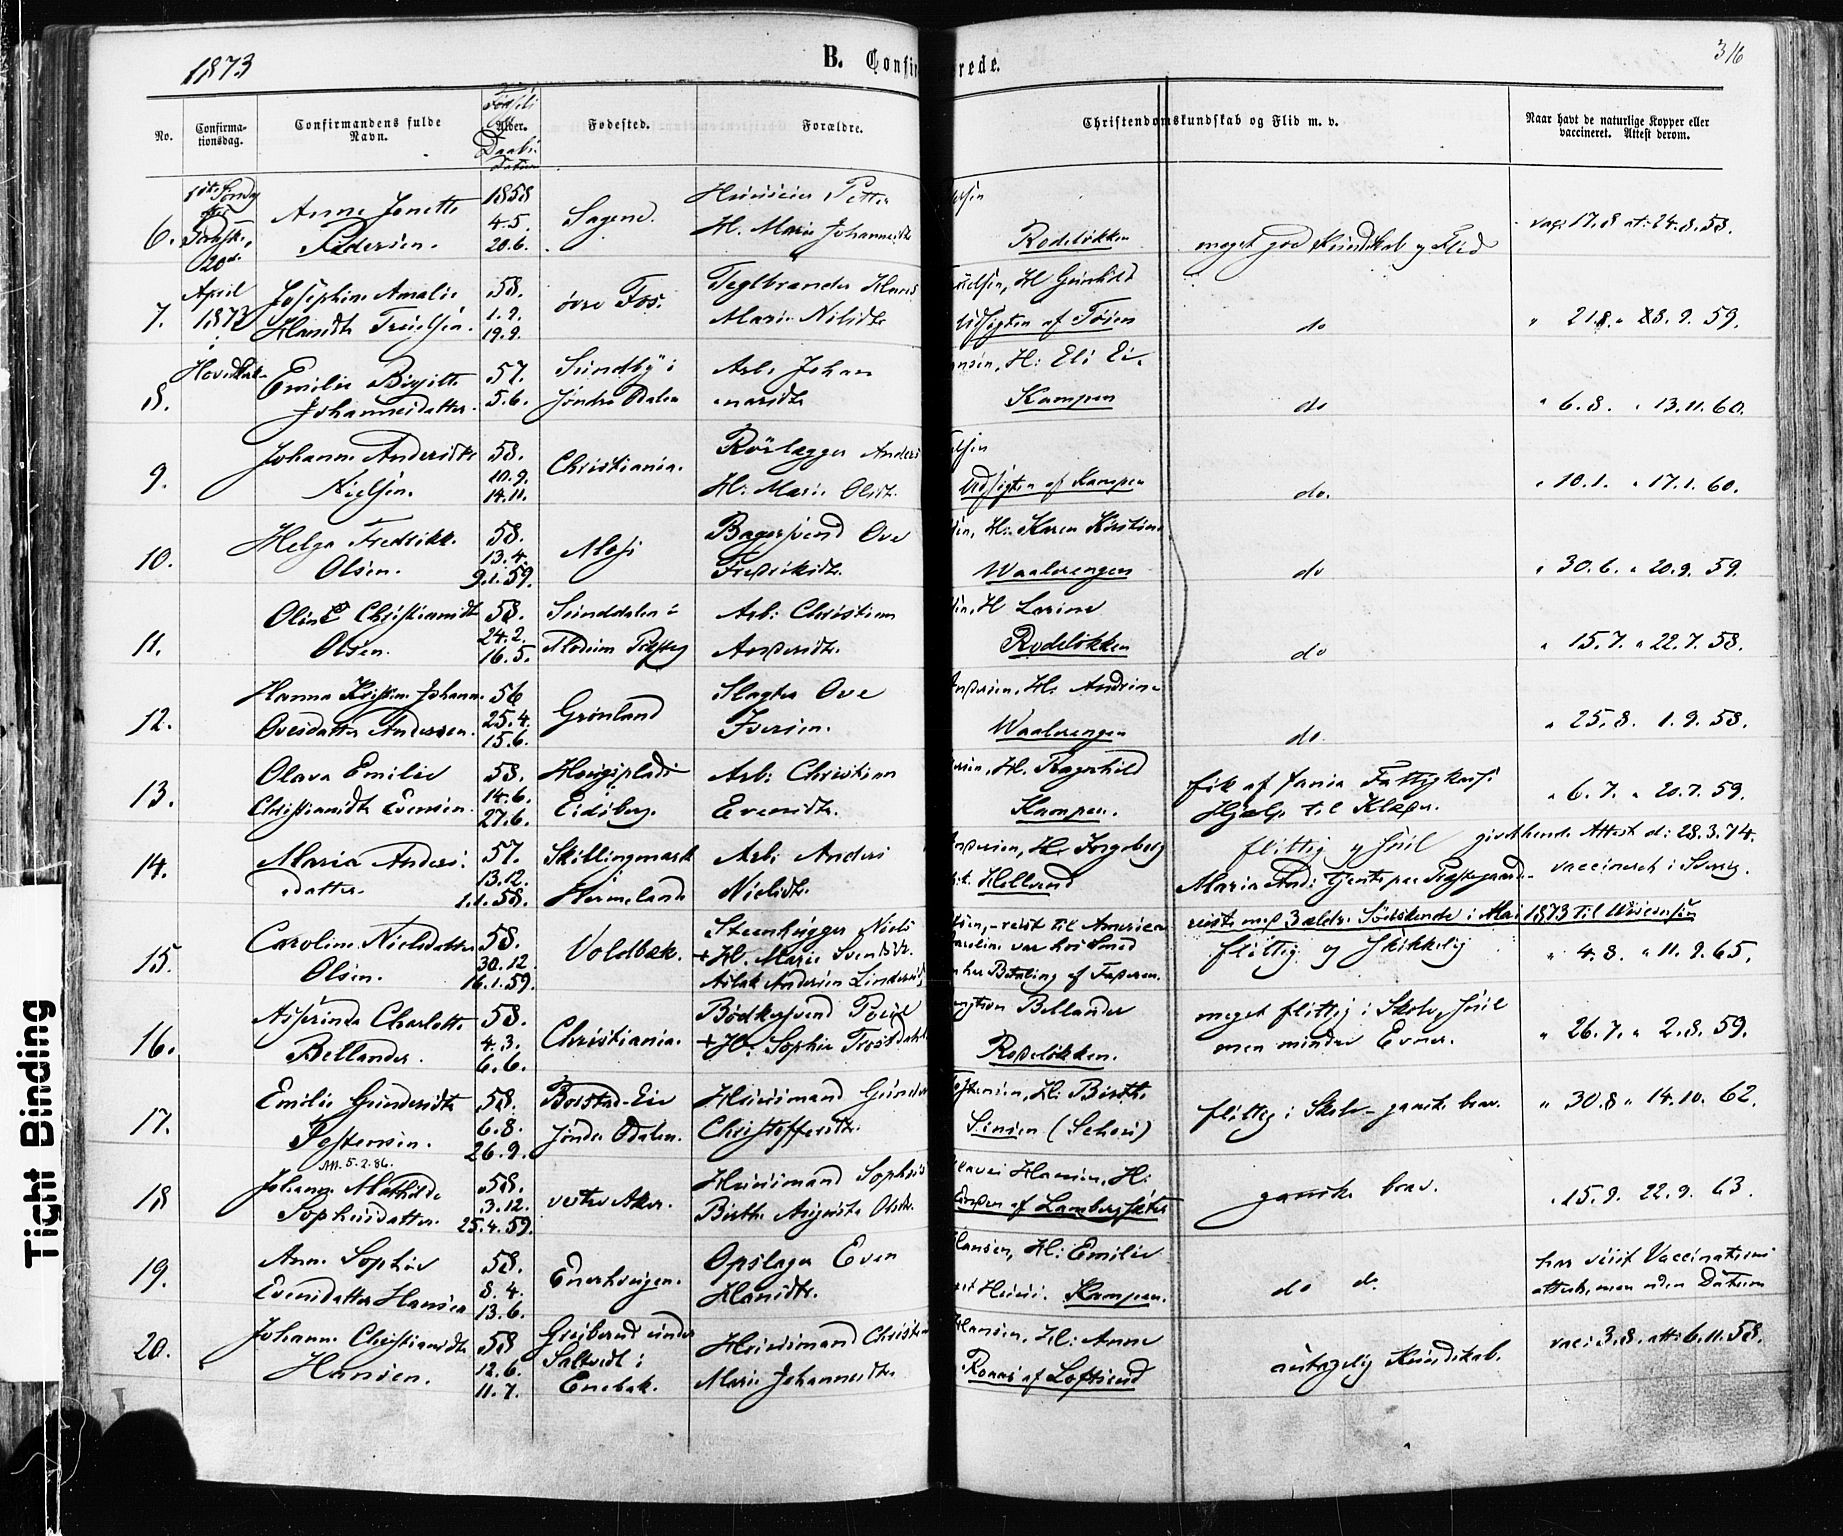 1873
B. Confir rede.
316
No.
Confirma-
tionsdag.
Confirmandens fulde
Navn.
Fødsels
og
Alder.
Daabs
datum
Fødested.
Forældre.
Christendomskundskab og Flid m. v.
Naar havt de naturlige Kopper eller
vaccineret. Attest derom.
6.
1ste Søndag
efter
Paaske,
20de
April
1873
i
Anne Jonette
Pedersen.
1858
4.5.
20.6.
Sagene.
Petter
H. Marie Johannesdtr
Rodeløkken
meget god Kundskab og Flid
vac: 17.8 at: 24.8.58.
7.
Josephine Amalie
Hansdtr
58.
1.9.
19.9.
øvre Fos.
Teglbrænder Hans
Marie Nilsdtr
H Gunhild
Udsigten af Tøien
do
" 21.8. " 28.9. 59.
8.
Emilie Birgitte
Johannesdatter.
57.
5.6.
Sundby i
Søndre Odalen
Arb. Johan
narsdtr
ansen, H: Eli Ei-
Kampen
do
" 6.8. " 13.11.60.
9.
Johanne Andersdtr
Nielsen.
58.
10.9.
14.11.
Christiania.
Rørlægger Anders
H: Marie Olsdtr.
elsen
Udsigten af Kampen
do.
" 10.1. " 17.1.60.
10.
Helga Fredrikke
Olsen.
58.
13.4.
9.1.59.
Moss
Bagersvend Ove
Frederiksdtr.
sen, H: Karen Kirstine
Waalerengen
do
" 30.6. " 20.9. 59.
11.
Oline Christiansdtr
Olsen.
58.
24.2.
16.5.
Sunddalen i
Arb: Christian
Andersdtr.
sen, H Larine
Rodeløkken
do
" 15.7. " 22.7.58.
12.
Hanna Kristine Johanne
Ovesdatter Andersen.
56
25.4.
15.6.
Grønland
Slagter Ove
Iversen.
Andersen, H: Andrine
Waalerengen
do
" 25.8. 1.9.58.
13.
Olava Emilie
Christiansdtr Evensen.
58.
14.6.
27.6.
Eidsberg.
Arb: Christian
Evensdtr.
ersen, H. Ragnhild
Kampen.
fik af Fattigkasse
Hjælp til Klæder.
" 6.7. " 20.7.59.
14.
Maria Anders-
datter.
57.
13.12.
1.1.58.
Skillingmark
Vermeland
Arb: Anders
Nielsdtr.
Andersen, H: Ingeborg
Hellerud
flittig og snil
godkjendt Attest d: 28.3.74.
Maria And: tjente paa Præstegaard-
vaccineret i Sverig.
15.
Caroline Nielsdatter
Olsen.
58.
30.12.
16.1.59.
Voldbæk.
Steenhugger Niels
+ H. Marie Svendsdtr.
Aslak Andersen Linderud
sen, - reist til Amerika
Caroline var hos Smed
Betaling af Faderen.
reiste med 3 ældre Søskende i Mai 1873 til Wisconsin
flittig og skikkelig
" 4.8. " 11.9.65.
16.
Asserinda Charlotte
Bellander.
58.
4.3.
6.6.
Christiania.
Bødkersvend Povel
+ H: Sophie
Bengtson Bellander
Rodeløkken.
meget flittig i Skole, snil
men mindre Evner.
" 26.7. " 2.8.59.
17.
Emilie Gundersdtr
58.
6.8.
26.9.
Borstad-Eie
Søndre Odalen.
Huusmand Gunder
Christoffersdtr
H: Birthe
Sinsen (Scheen)
flittig i Skole - ganske brav.
" 30.8 " 14.10. 62.
M. 5.2.86.
18
Johanne Mathilde
Sophusdatter.
58.
3.12.
25.4.59.
vestre Aker.
Huusmand Sophus
Birthe Augusta Olsdtr.
Olaves Hansen, H:
af Lambergsæter
ganske brav.
" 15.9. 22.9. 63.
19.
Anne Sophie
Evensdatter Hansen
58.
8.4.
13.6.
Enerhaugen.
Opslager Even
Hansdtr.
Hansen, H: Emilie
Kampen.
do do
har vist Vaccinations
attest, men uden Datum
20.
Johanne Christiansdtr
Hansen.
58
12.6.
11.7.
under
i
Enebak.
Huusmand Christian
Marie Johannesdtr
Hansen, H: Anne
af Loftsrud
antagelig Kundskab.
vac: 3.8. att: 6.11.58.
Tight Binding